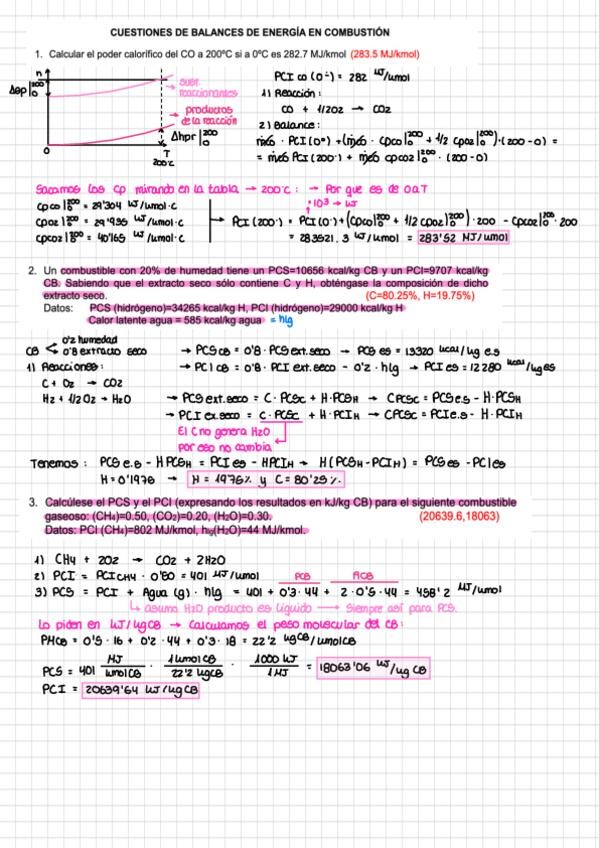 CUESTIONES DE BALANCES DE ENERGÍA EN COMBUSTIÓN
1. Calcular el poder calorífico del CO a 200ºC si a 0ºC es 282.7 MJ/kmol (283.5 MJ/kmol)
h
Δhp|₀²⁰⁰
reaccionantes
productos
de la reacción
Δhpr|₀²⁰⁰
0
T
200ºC
PCI co (0º) = 282 MJ/kmol
1) Reacción:
CO + 1/2O2 → CO2
2) Balance:
ṁco · PCI(0º) + (ṁco · Cpco|₀²⁰⁰ + 1/2 Cpo2|₀²⁰⁰)·(200-0) =
= ṁco PCI (200º) + ṁco Cpco2|₀²⁰⁰ · (200-0)
Sacamos los Cp mirando en la tabla → 200ºC : → Por que es de 0 a T
Cpco|₀²⁰⁰ = 29'304 kJ/kmol·C
Cpo2|₀²⁰⁰ = 29'935 kJ/kmol·C
Cpco2|₀²⁰⁰ = 40'165 kJ/kmol·C
·10³ → kJ
PCI (200º) = PCI(0º) + (Cpco|₀²⁰⁰ + 1/2 Cpo2|₀²⁰⁰)·200 - Cpco2|₀²⁰⁰·200
= 283521.3 kJ/kmol = 283'52 MJ/kmol
2. Un combustible con 20% de humedad tiene un PCS=10656 kcal/kg CB y un PCI=9707 kcal/kg
CB. Sabiendo que el extracto seco sólo contiene C y H, obténgase la composición de dicho
extracto seco. (C=80.25%, H=19.75%)
Datos: PCS (hidrógeno)=34265 kcal/kg H, PCI (hidrógeno)=29000 kcal/kg H
Calor latente agua = 585 kcal/kg agua = hlg
CB
0'2 humedad
0'8 extracto seco
→ PCS CB = 0'8 · PCS ext.seco → PCS es = 13320 kcal/kg e.s
1) Reacciones: → PCI CB = 0'8 · PCI ext.seco - 0'2 · hlg → PCI es = 12280 kcal/kg es
C + O2 → CO2
H2 + 1/2O2 → H2O
→ PCS ext.seco = C · PCSC + H·PCSH → C PCSC = PCS e.s - H·PCSH
→ PCI ex.seco = C·PCSC + H·PCIH → C PCSC = PCI e.s - H·PCIH
El C no genera H2O
por eso no cambia
Tenemos : PCS e.s - H PCSH = PCI es - H PCIH → H(PCSH - PCIH) = PCS es - PCI es
H = 0'1976 → H = 19'76% y C = 80'25%.
3. Calcúlese el PCS y el PCI (expresando los resultados en kJ/kg CB) para el siguiente combustible
gaseoso: (CH₄)=0.50, (CO₂)=0.20, (H₂O)=0.30. (20639.6,18063)
Datos: PCI (CH₄)=802 MJ/kmol, hlg(H₂O)=44 MJ/kmol.
1) CH4 + 2O2 → CO2 + 2H2O
2) PCI = PCI CH4 · 0'50 = 401 MJ/kmol
3) PCS = PCI + Agua (g) · hlg = 401 + 0'3·44 + 2·0'5·44 = 458'2 MJ/kmol
asumo H2O producto es líquido → Siempre así para PCS.
Lo piden en kJ/kgCB → Calculamos el peso molecular del CB:
PM CB = 0'5 · 16 + 0'2 · 44 + 0'3 · 18 = 22'2 kgCB/kmolCB
PCS = 401 MJ/kmolCB · 1 kmolCB/22'2 kgCB · 1000 kJ/1 MJ = 18063'06 kJ/kg CB
PCI = 20639'64 kJ/kgCB